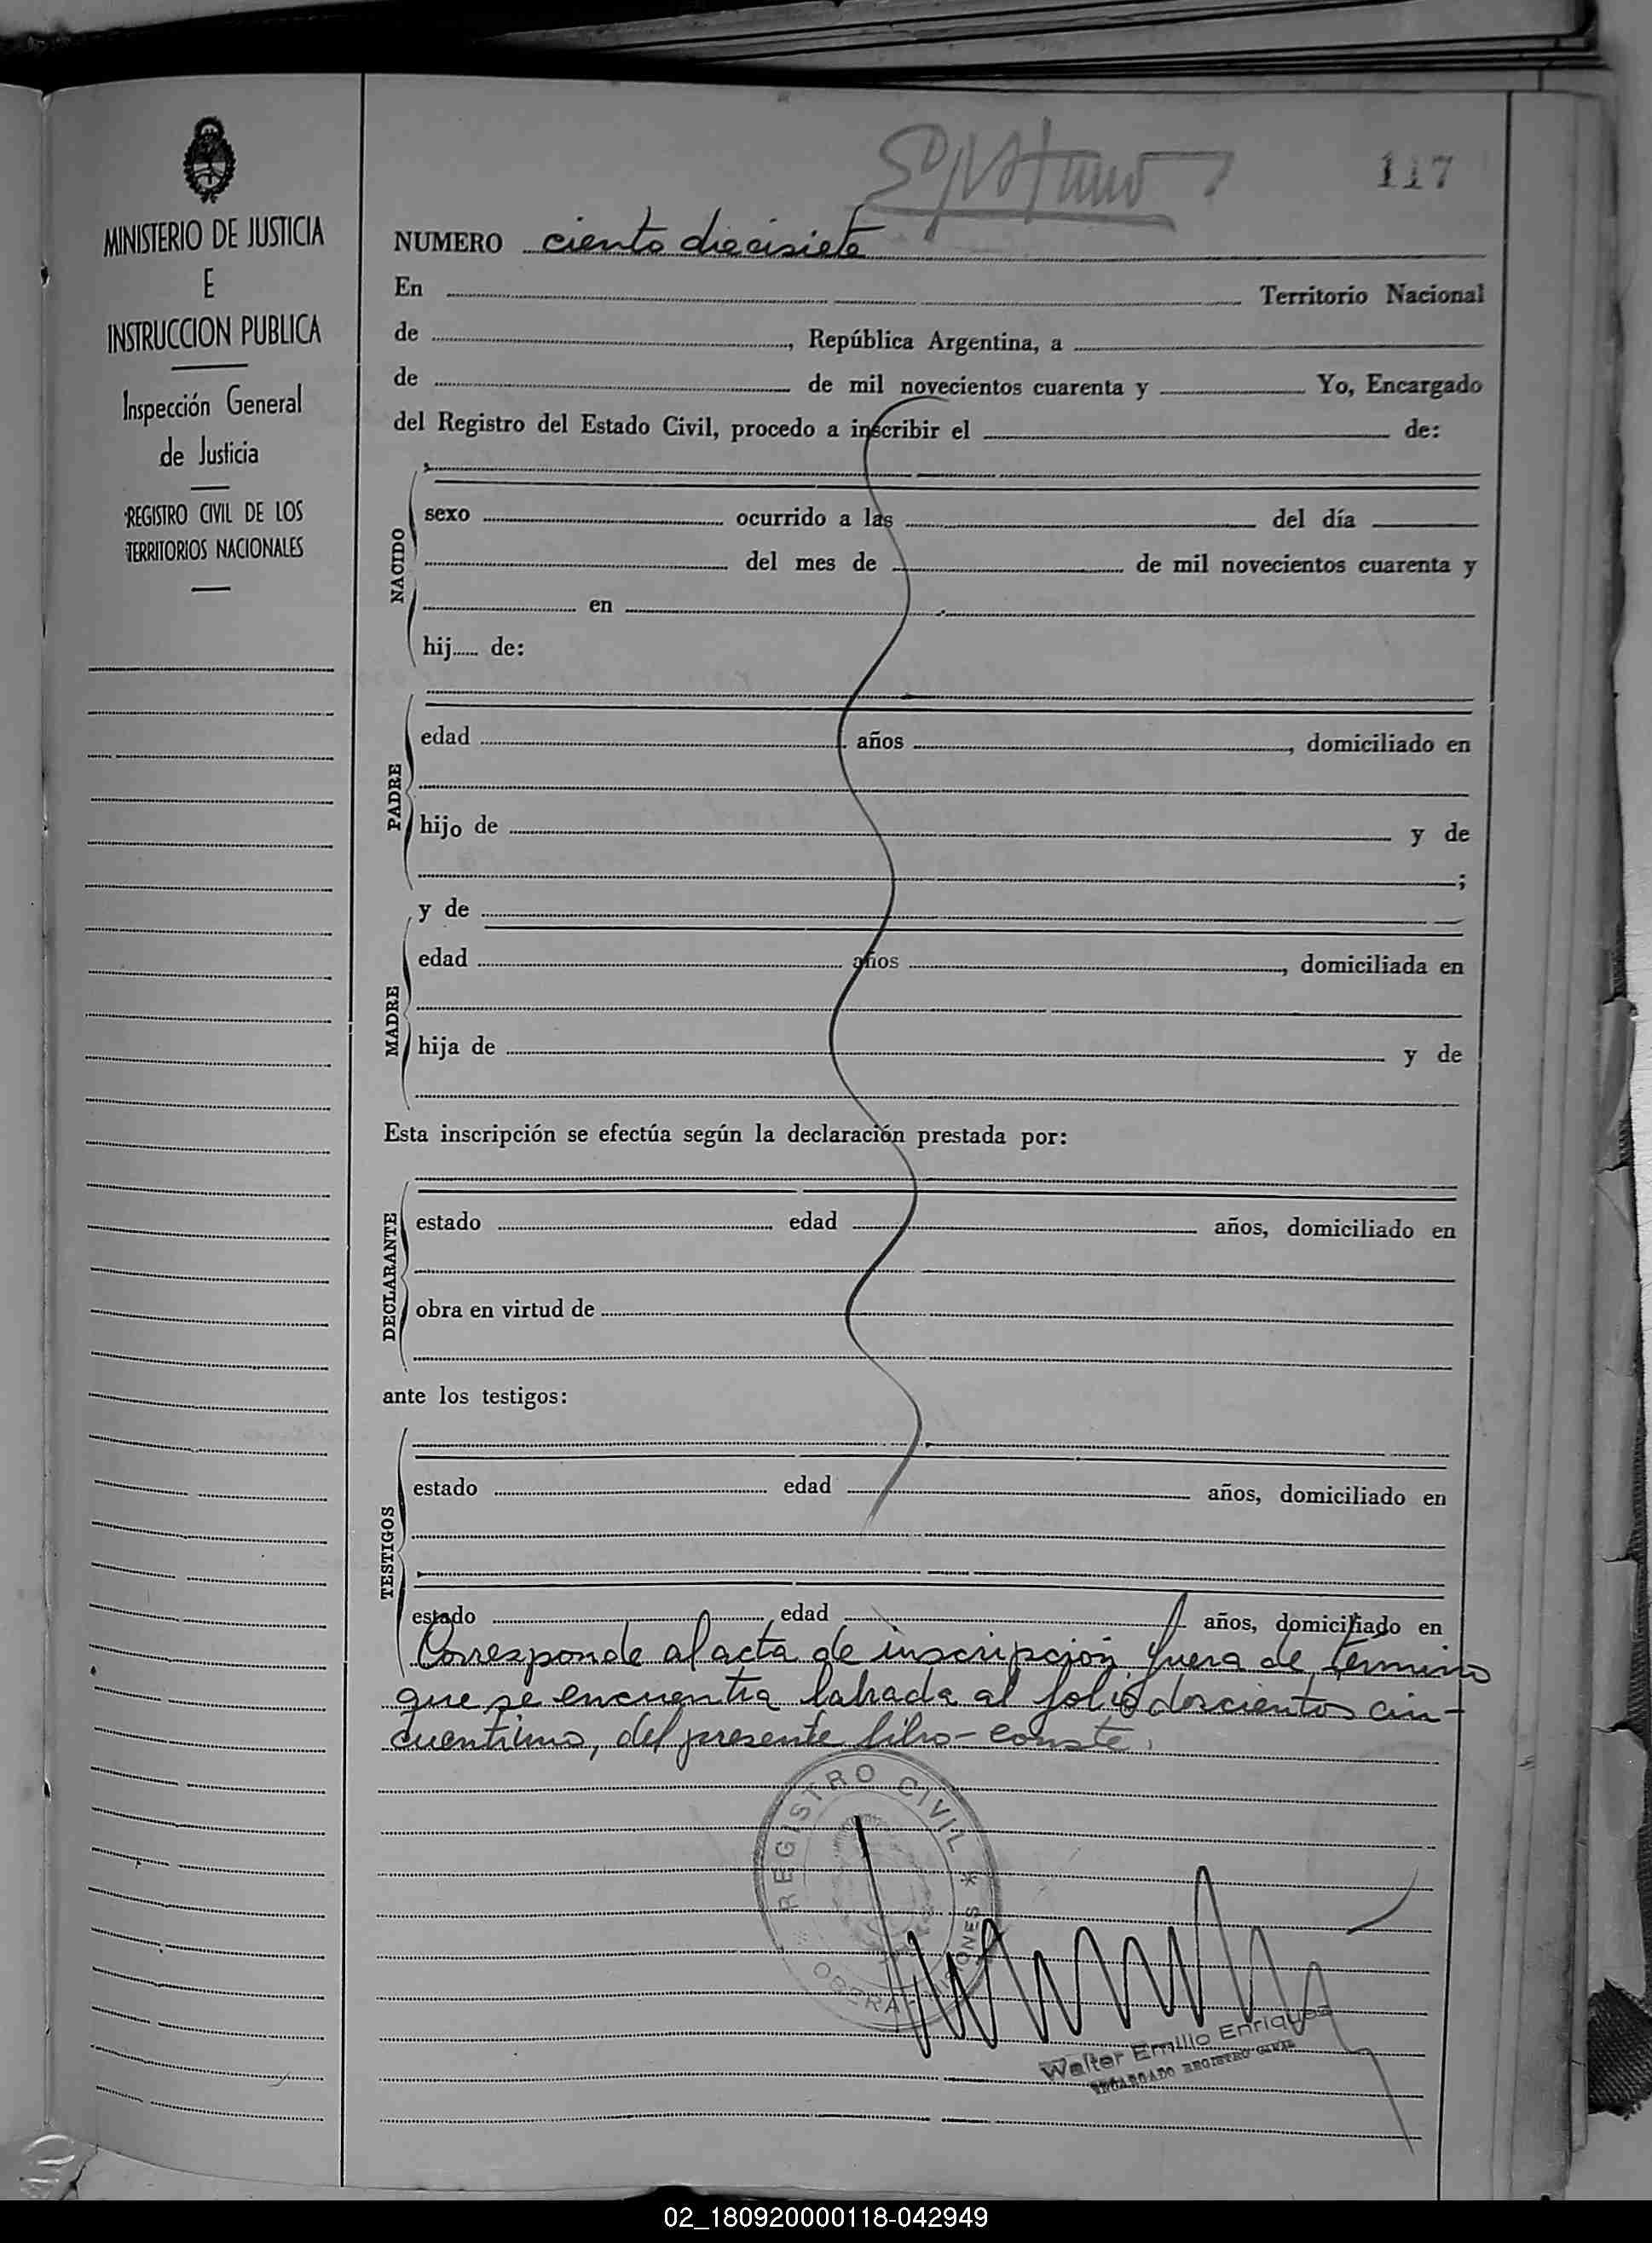 117
MINISTERIO DE JUSTICIA
E
INSTRUCCION PUBLICA
Inspección General
de Justicia
REGISTRO CIVIL DE LOS
TERRITORIOS NACIONALES
NUMERO ciento diecisiete
En Territorio Nacional
de , República Argentina, a
de de mil novecientos cuarenta y Yo, Encargado
del Registro del Estado Civil, procedo a inscribir el de:
NACIDO
sexo ocurrido a las del día
del mes de de mil novecientos cuarenta y
en
hij...... de:
PADRE
edad años , domiciliado en
hijo de y de
;
y de
MADRE
edad años , domiciliada en
hija de y de
Esta inscripción se efectúa según la declaración prestada por:
DECLARANTE
estado edad años, domiciliado en
obra en virtud de
ante los testigos:
TESTIGOS
estado edad años, domiciliado en
estado edad años, domiciliado en
Corresponde al acta de inscripción fuera de termino
que se encuentra labrada al folio doscientos cin-
cuentiuno, del presente libro - conste.
REGISTRO CIVIL * OBERA - MISIONES *
Walter Emilio Enriquez
ENCARGADO REGISTRO CIVIL
02_180920000118-042949